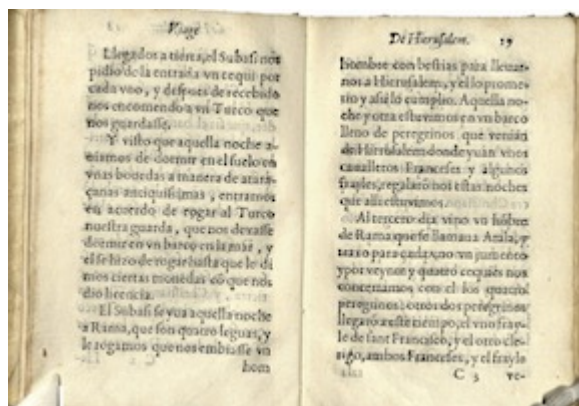 Viage
Llegados a tierra, el Subasi nos
pidio de la entrada vn cequi por
cada vno, y despues de recebido
nos encomendo a vn Turco que
nos guardasse.
Y visto que aquella noche a-
uiamos de dormir en el suelo en
vnas bouedas a manera de atara-
çanas antiquissimas, entramos
en acuerdo de rogar al Turco
nuestra guarda, que nos dexasse
dormir en vn barco en la mar, y
el se hizo de rogar hasta que le di
mos ciertas monedas cõ que nos
dio licencia.
El Subasi se yua aquella noche
a Rama, que son quatro leguas, y
le rogamos que nos embiasse vn
hom
De Hierusalem. 19
hombre con bestias para lleuar-
nos a Hierusalem, y el lo prome-
tio y assi lo cumplio. Aquella no-
che y otra estuuimos en vn barco
lleno de peregrinos que venian
de Hierusalem donde yuan vnos
caualleros Franceses y algunos
frayles, regalarõ nos estas noches
que alli estuuimos.
Al tercero dia vino vn hõbre
de Rama que se llamaua Atala, y
traxo para cada vno vn jumento
y por veynte y quatro cequies nos
concertamos con el los quatro
peregrinos: otros dos peregrinos
llegarõ a este tiempo, el vno fray-
le de sant Francisco, y el otro cle-
rigo, ambos Franceses, y el frayle
C 3 ve-